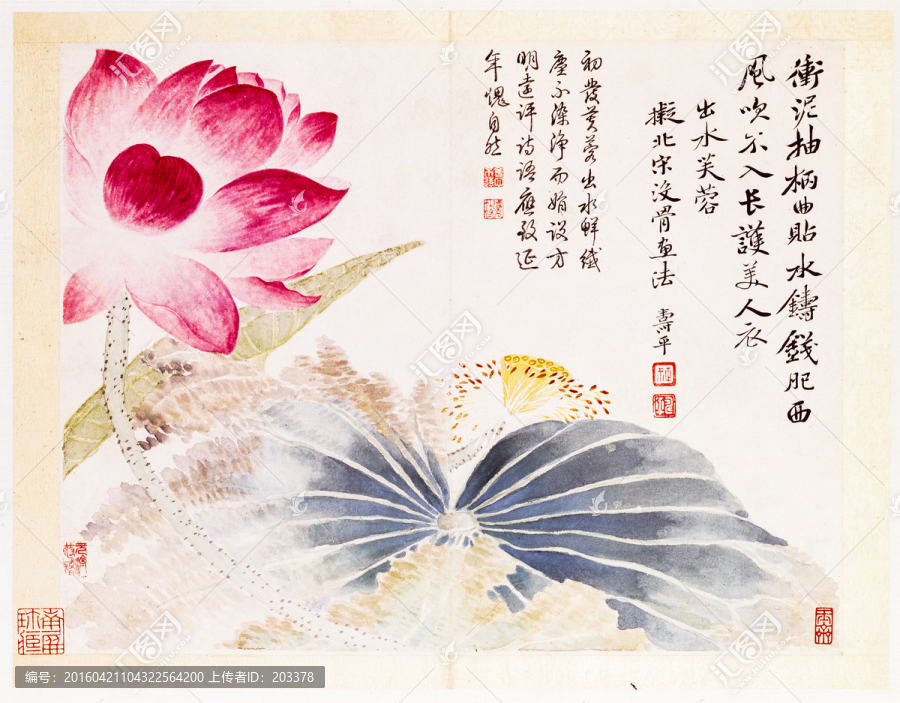 衝泥抽柄曲貼水鑄錢肥西
風吹不入長護美人衣
出水芙蓉
擬北宋没骨画法 壽平
初發芙蓉出水鮮纖
塵不染淨而娟設方
明遠評詩語應致延
年愧自然
编号：20160421104322564200 上传者ID：203378
汇图网